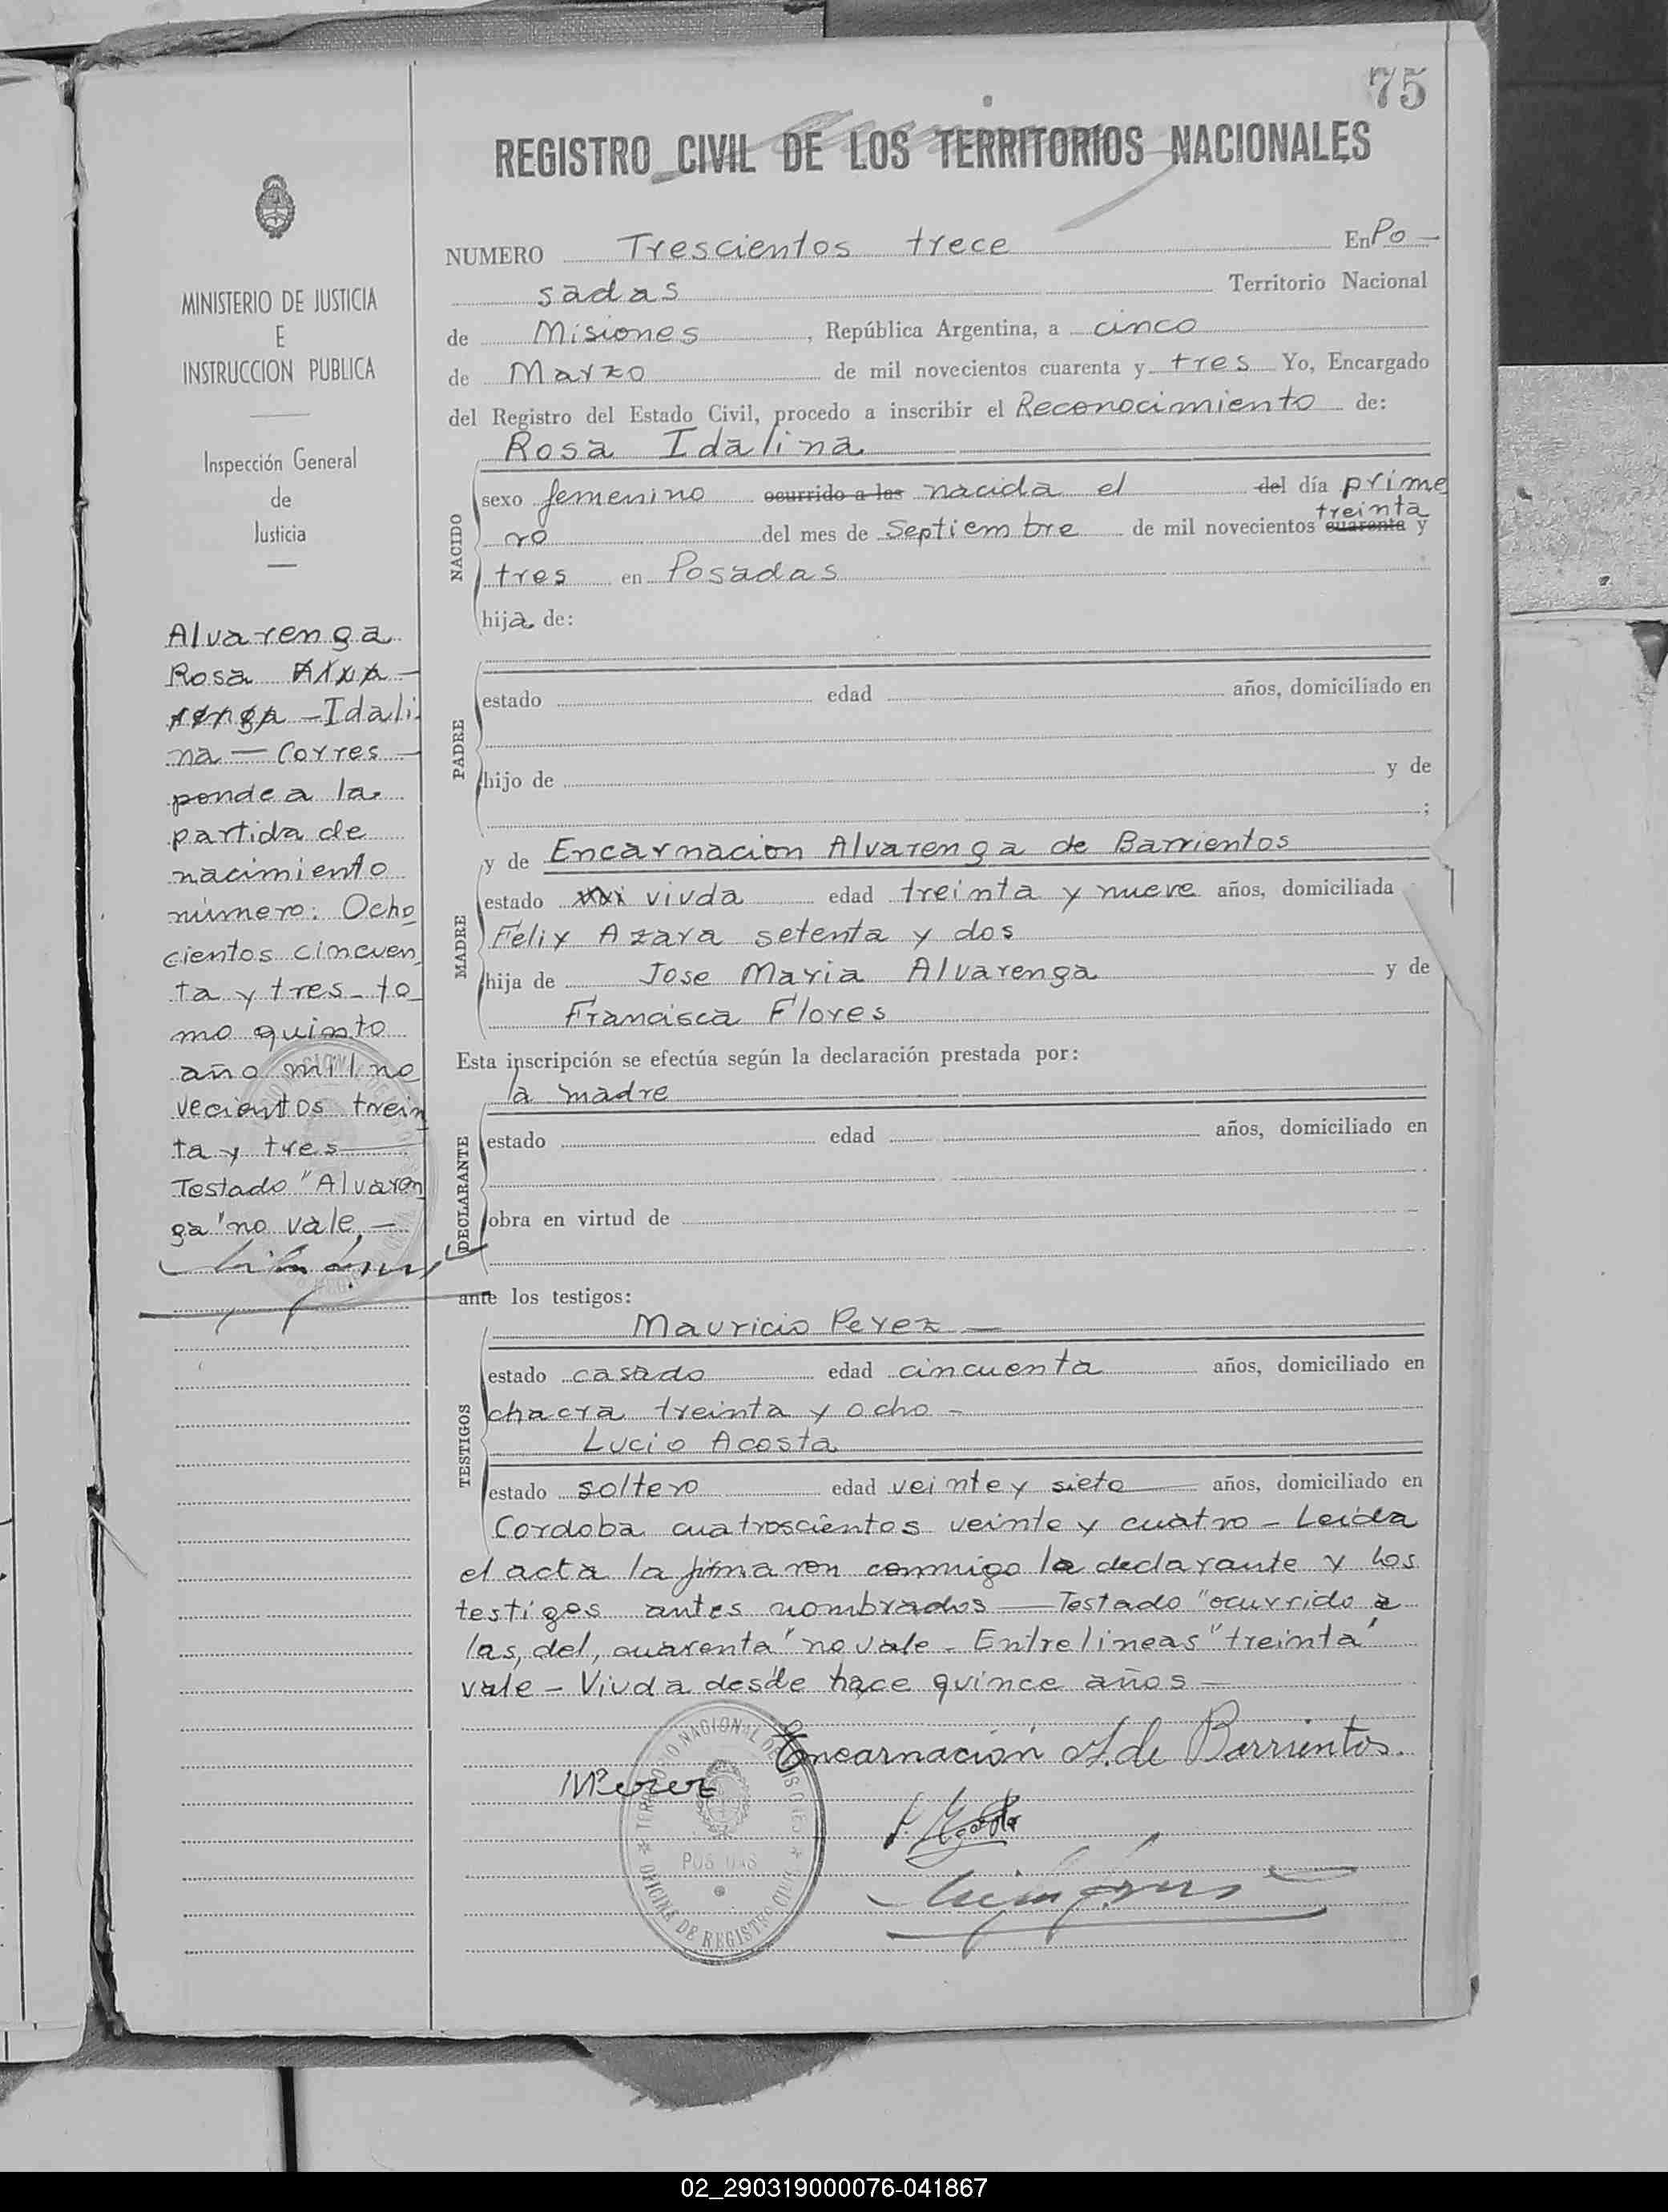 75
REGISTRO CIVIL DE LOS TERRITORIOS NACIONALES
MINISTERIO DE JUSTICIA
E
INSTRUCCION PUBLICA
Inspección General
de
Justicia
Alvarenga
Rosa Alva-
renga - Idali
na - Corres-
ponde a la
partida de
nacimiento
número: Ocho
cientos cincuen
ta y tres - to
mo quinto
año mil no
vecientos trein
ta y tres
Testado "Alvaren
ga" no vale. -
NUMERO Trescientos trece En Po-
sadas Territorio Nacional
de Misiones, República Argentina, a cinco
de Marzo de mil novecientos cuarenta y tres Yo, Encargado
del Registro del Estado Civil, procedo a inscribir el Reconocimiento de:
Rosa Idalina
NACIDO
sexo femenino ocurrido a las nacida el del día prime
treinta
ro del mes de Septiembre de mil novecientos cuarenta y
tres en Posadas
hija de:
PADRE
estado edad años, domiciliado en
hijo de y de
;
MADRE
y de Encarnacion Alvarenga de Barrientos
estado viuda edad treinta y nueve años, domiciliada
Felix Azara setenta y dos
hija de Jose Maria Alvarenga y de
Francisca Flores
Esta inscripción se efectúa según la declaración prestada por:
la madre
DECLARANTE
estado edad años, domiciliado en
obra en virtud de
ante los testigos:
TESTIGOS
Mauricio Perez -
estado casado edad cincuenta años, domiciliado en
chacra treinta y ocho -
Lucio Acosta
estado soltero edad veinte y siete años, domiciliado en
Cordoba cuatroscientos veinte y cuatro - Leida
el acta la firmaron conmigo la declarante y los
testigos antes nombrados - Testado "ocurrido a
las, del, cuarenta" no vale - Entrelineas "treinta"
vale - Viuda desde hace quince años -
Encarnación A. de Barrientos.
MPerez
TERRITORIO NACIONAL DE MISIONES
POSADAS
OFICINA DE REGISTRO CIVIL
02_290319000076-041867